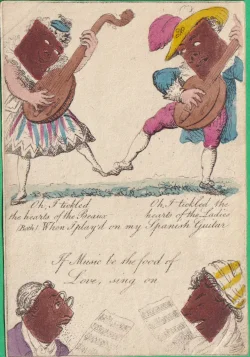 Oh, I tickled
the hearts of the Beaux
Oh, I tickled the
hearts of the Ladies
(Both) When I play'd on my Spanish Guitar
If Music be the food of
Love, sing on